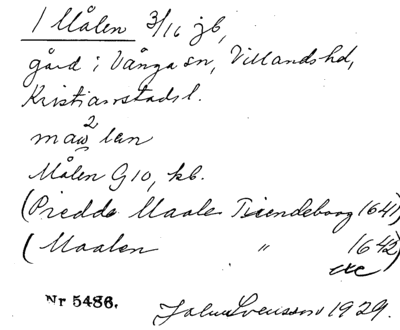 1 Målen 3/16 jb,
gård i Vånga sn, Villands hd,
Kristianstads l.
Målen G10, kb.
(Predde Maale Tiendeborg 1641)
(Maalen " 1642)
etc
Nr 5486.
John Svensson 1929.